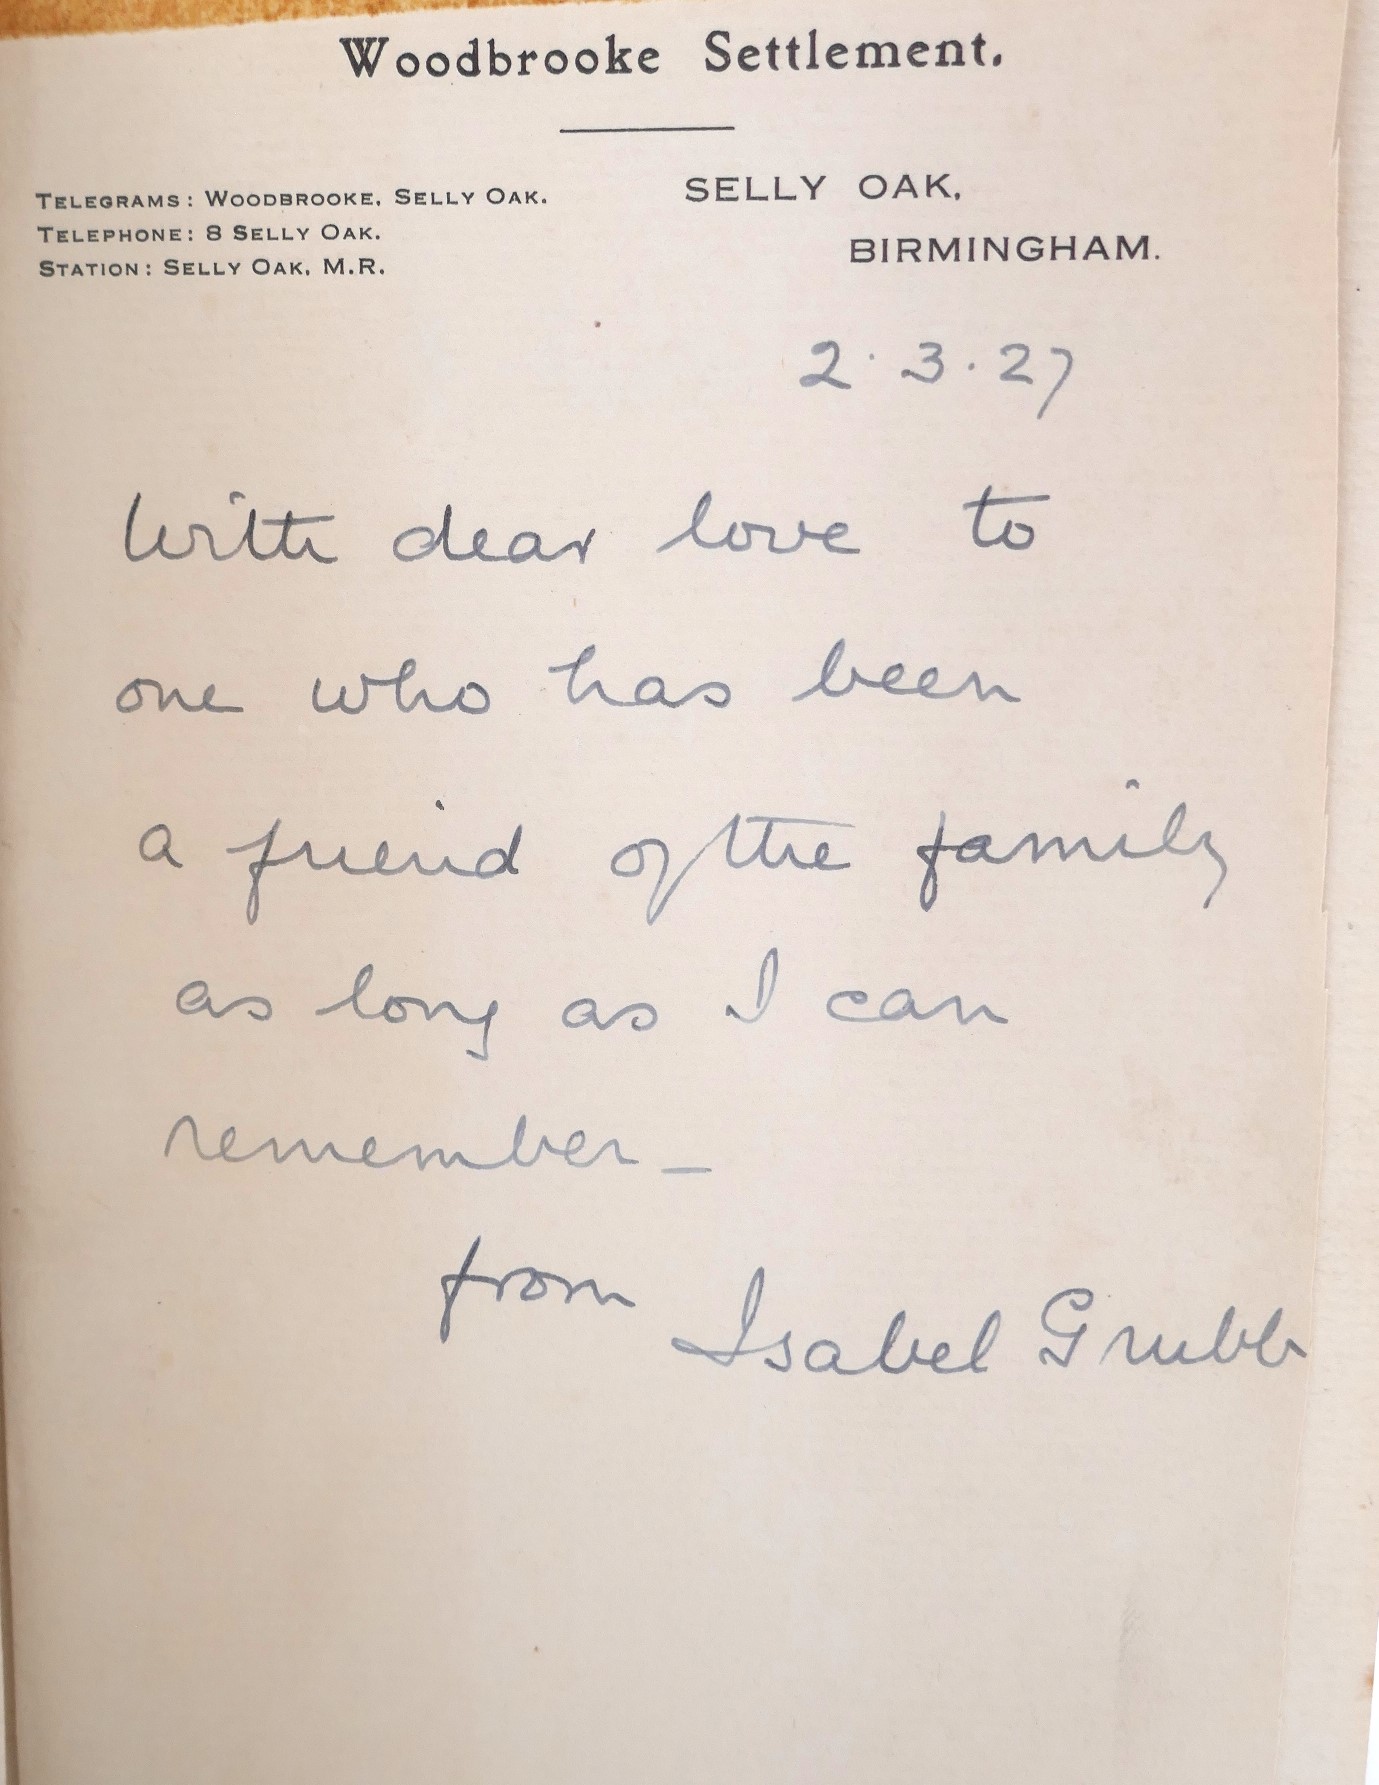 Woodbrooke Settlement.
TELEGRAMS: WOODBROOKE, SELLY OAK.
TELEPHONE: 8 SELLY OAK.
STATION: SELLY OAK, M.R.
SELLY OAK,
BIRMINGHAM.
2.3.27
With dear love to
one who has been
a friend of the family
as long as I can
remember –
from Isabel Grubb